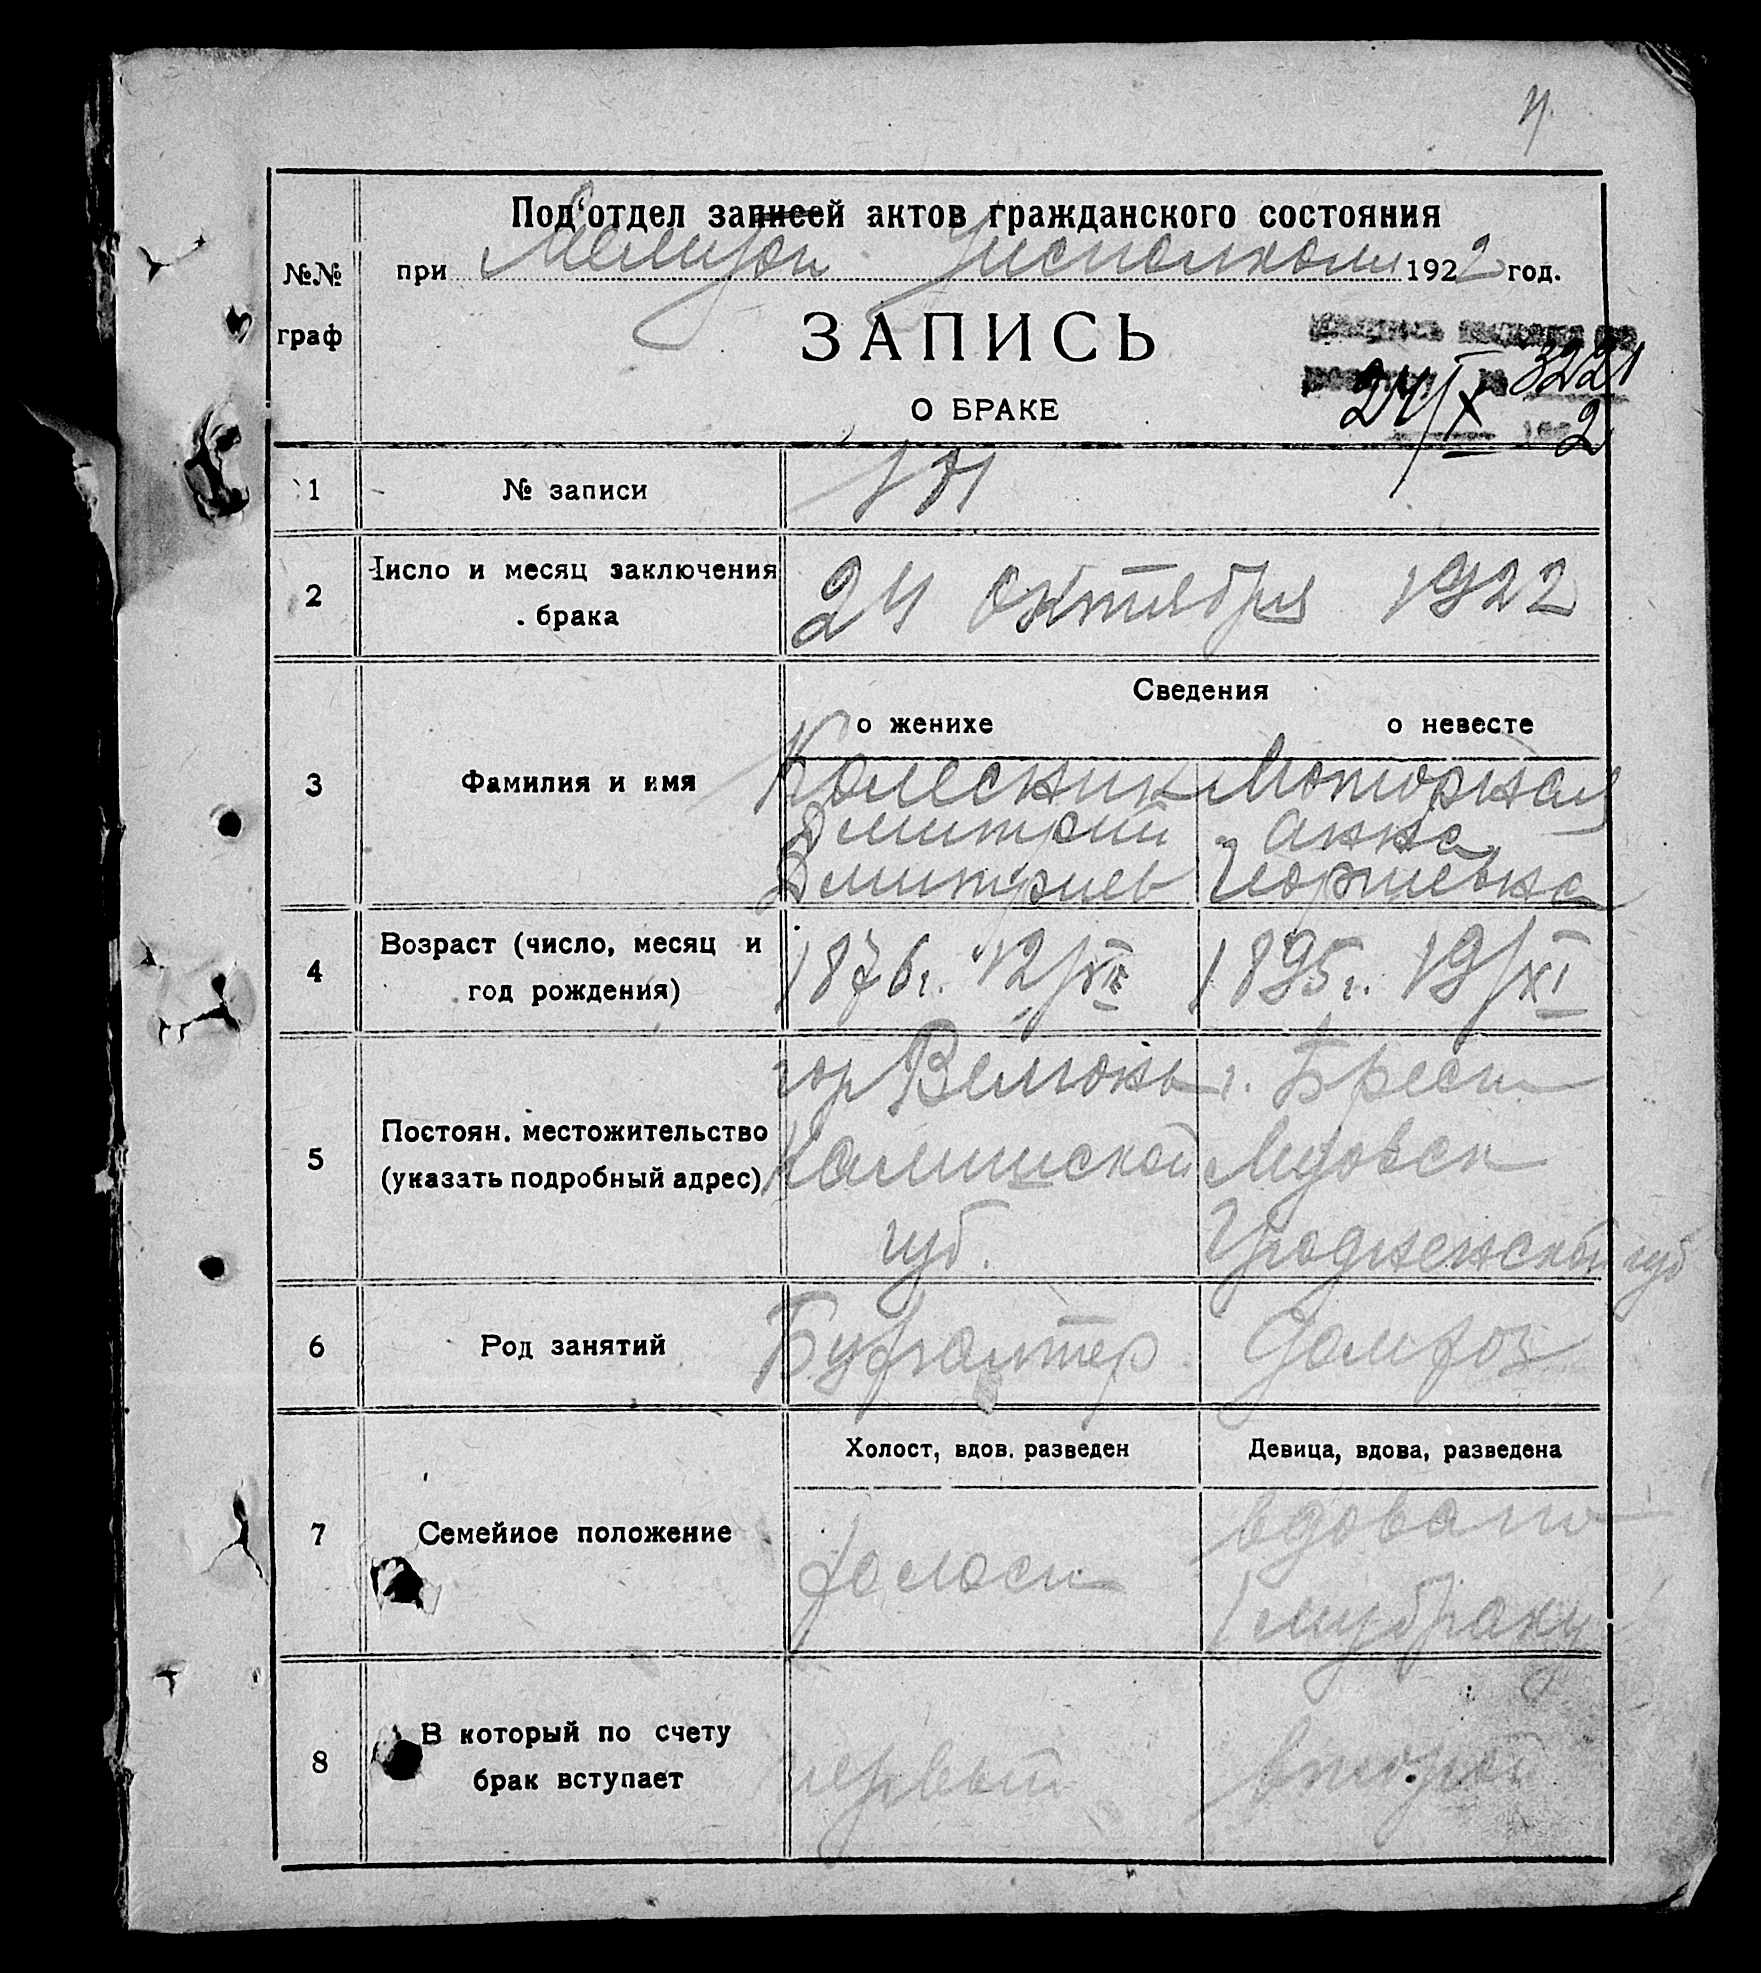 Под'отдел записей актов гражданского состояния
при Исполкоме 1922 год.
№№
граф
ЗАПИСЬ
О БРАКЕ
3221
24/X
2
1 № записи
2 Число и месяц заключения
брака
24 октября 1922
Сведения
о женихе о невесте
3 Фамилия и имя
Колесник Моторная
Дмитрий Анна
Дмитриев Георгиевна
4 Возраст (число, месяц и
год рождения)
1876 г. 12/XII 1895 г. 19/XI
5 Постоян. местожительство
(указать подробный адрес)
гор Велюнь г. Брест
Калишской Литовск
губ. Гродненской губ
6 Род занятий
Бухгалтер Домхоз
Холост, вдов. разведен Девица, вдова, разведена
7 Семейное положение
холост вдова по
1му браку
8 В который по счету
брак вступает
первый второй